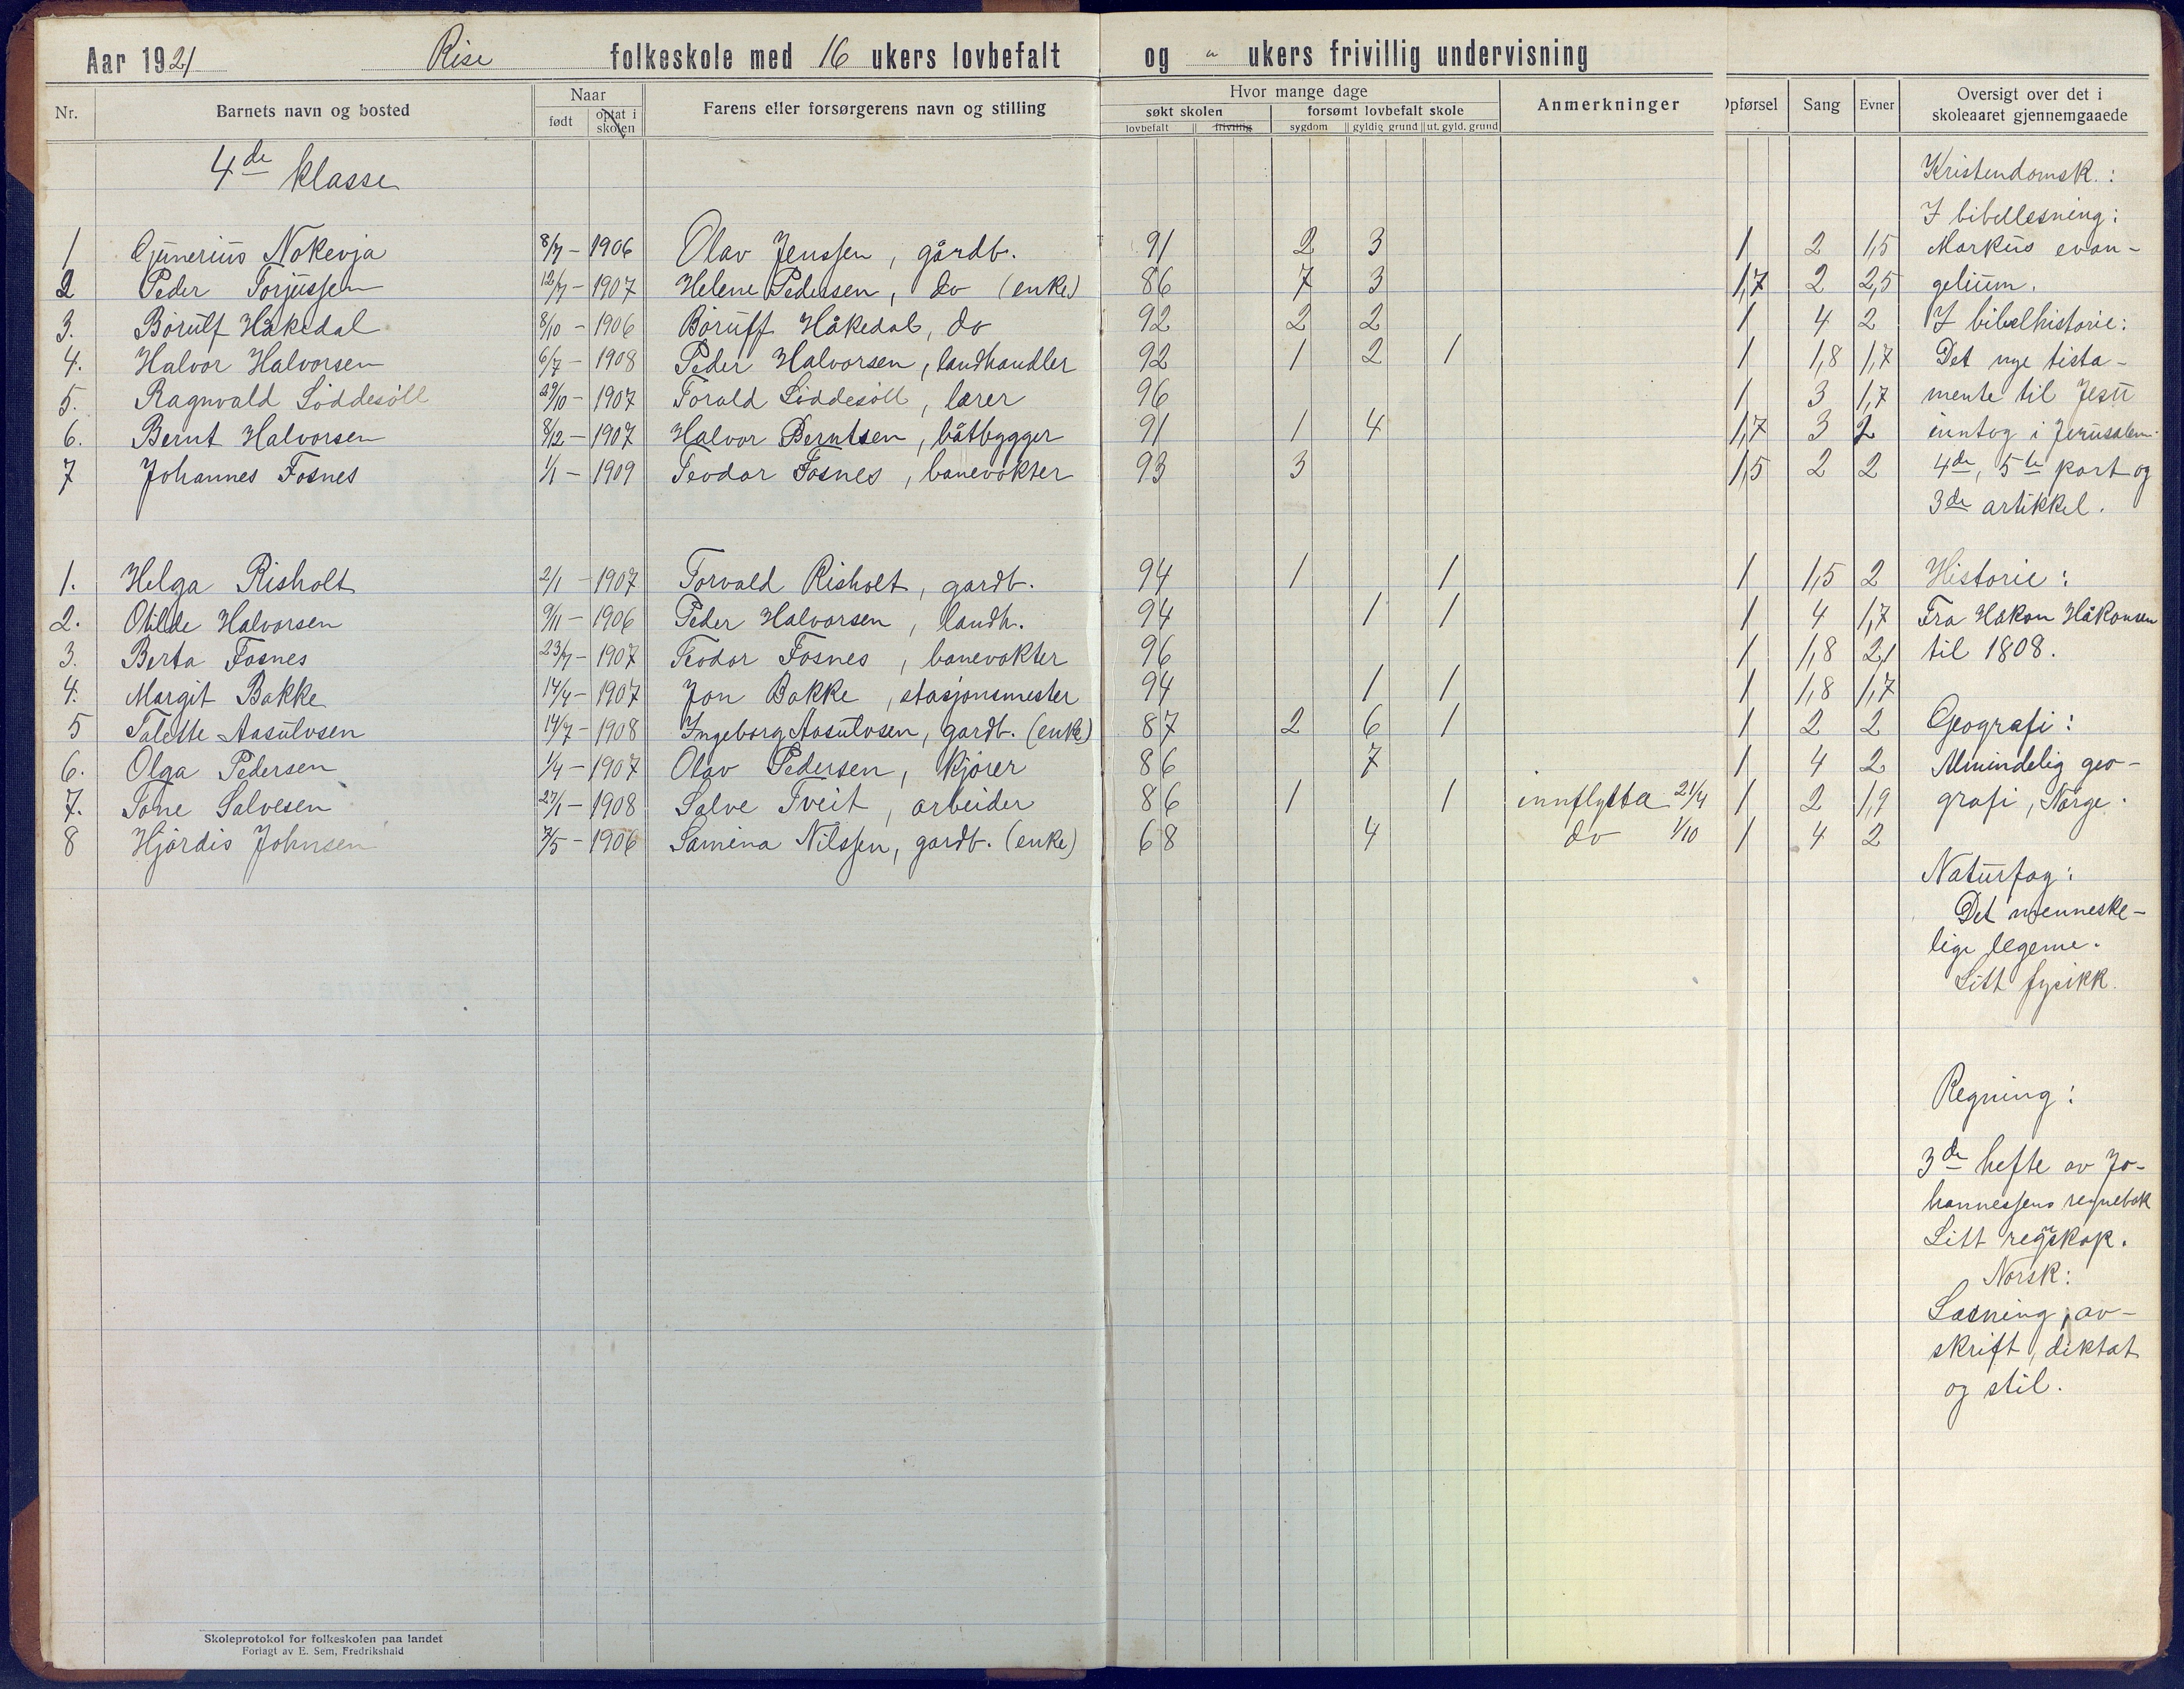 Aar 1921 Rise folkeskole med 16 ukers lovbefalt og " ukers frivillig undervisning
Nr. Barnets navn og bosted Naar født optat i skolen Farens eller forsørgerens navn og stilling Hvor mange dage søkt skolen lovbefalt frivillig forsømt lovbefalt skole sygdom gyldig grund ut. gyld. grund Anmerkninger Opførsel Sang Evner Oversigt over det i skoleaaret gjennemgaaede
4de klasse
1 Gunerius Nokevja 8/7 - 1906 Olav Jenssen, gårdb. 91 2 3 1 2 1,5
2 Peder Torjussen 12/7 - 1907 Helene Pedersen, do (enke) 86 7 3 1,7 2 2,5
3. Börulf Håkedal 8/10 - 1906 Böruff Håkedal, do 92 2 2 1 4 2
4. Halvor Halvorsen 6/7 - 1908 Peder Halvorsen, landhandler 92 1 2 1 1 1,8 1,7
5. Ragnvald Löddesöll 29/10 - 1907 Torald Löddesöll, lærer 96 1 3 1,7
6. Bernt Halvorsen 8/12 - 1907 Halvor Berntsen, båtbygger 91 1 4 1,7 3 2
7 Johannes Fosnes 1/1 - 1909 Teodor Fosnes, banevokter 93 3 1,5 2 2
1. Helga Risholt 2/1 - 1907 Torvald Risholt, gardb. 94 1 1 1 1,5 2
2. Otilde Halvorsen 9/11 - 1906 Peder Halvorsen, landh. 94 1 1 1 4 1,7
3. Berta Fosnes 23/7 - 1907 Teodor Fosnes, banevokter 96 1 1,8 2,1
4. Margit Bakke 14/4 - 1907 Jon Bakke, stasjonsmester 94 1 1 1 1,8 1,7
5 Talette Aasulvsen 14/7 - 1908 Ingeborg Aasulvsen, gardb. (enke) 87 2 6 1 1 2 2
6. Olga Pedersen 1/4 - 1907 Olav Pedersen, kjörer 86 7 1 4 2
7. Tone Salvesen 27/1 - 1908 Salve Tveit, arbeider 86 1 1 innflytta 21/4 1 2 1,9
8 Hjördis Johnsen 7/5 - 1906 Samina Nilssen, gardb. (enke) 68 4 do 1/10 1 4 2
Kristendomsk.:
I bibellesning:
Markus evan-
gelium.
I bibelhistorie:
Det nye testa-
mente til Jesu
inntog i Jerusalem.
4de, 5te part og
3de artikkel.
Historie:
Fra Håkon Håkonsen
til 1808.
Geografi:
Almindelig geo-
grafi, Norge.
Naturfag:
Det menneske-
lige legeme.
Litt fysikk.
Regning:
3de hefte av Jo-
hannessens regnebok
Litt regnskap.
Norsk:
Læsning, av-
skrift, diktat
og stil.
Skoleprotokol for folkeskolen paa landet
Forlagt av E. Sem, Fredrikshald